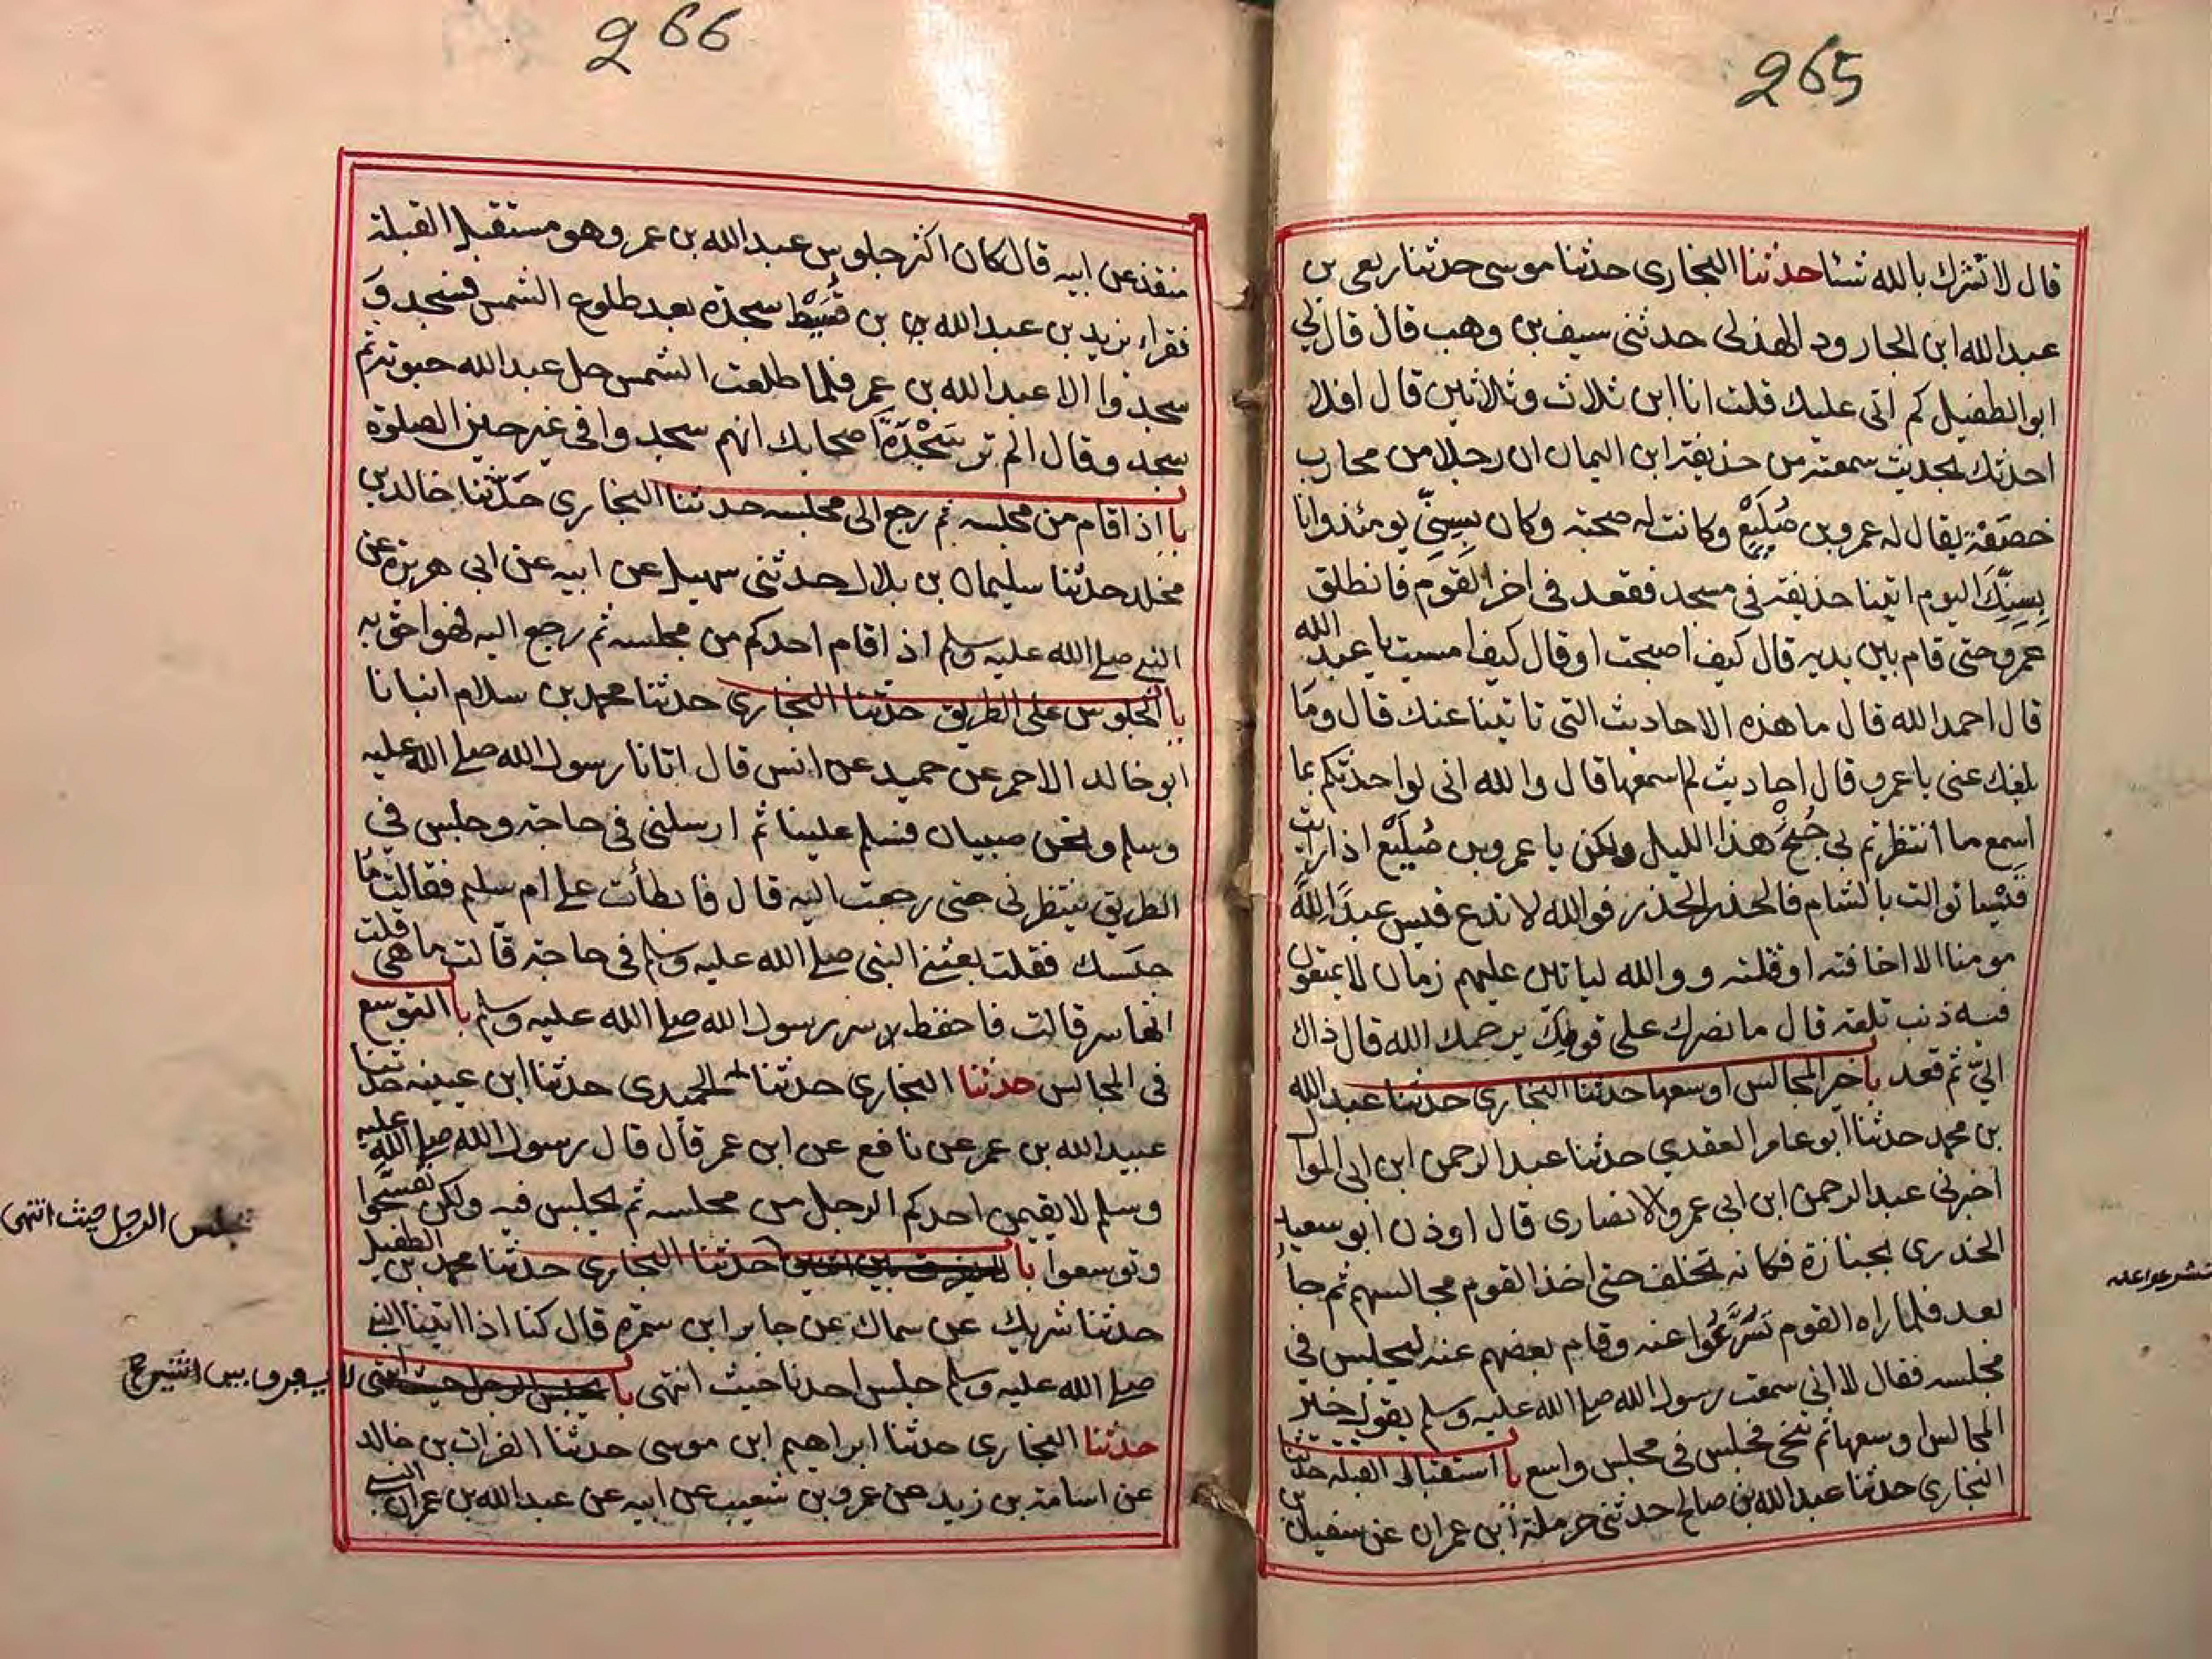 265
قال لا تشرك بالله شئا حدثنا البخارى حدثنا موسى حدثنا ربعى بن
عبد الله ابن الجارود الهذلى حدثنى سيف بن وهب قال قال لى
ابو الطفيل كم اتى عليك قلت انا ابن ثلاث وثلاثين قال افلا
احدثك بحديث سمعته من حذيفة ابن اليمان ان رجلا من محارب
خصفة يقال له عمرو بن صُلَيْعٍ وكانت له صحبة وكان بِسِنّى يومئذ وانا
بِسِنِّكَ اليوم اتينا حذيفة فى مسجد فقعد فى اخر القوم فانطلق
عمرو حتى قام بين يديه قال كيف اصبحت او قال كيف امسيت يا عبد الله
قال احمد الله قال ما هذه الاحاديث التى تاتينا عنك قال وما
بلغك عنى يا عمرو قال احاديث لم اسمعها قال والله انى لو احدثكم بما
اسمع ما انتظرتم بى جُنْحَ هذا الليل ولكن يا عمرو بن صُلَيْع اذا رايت
قيسا توالت بالشام فالحذر الحذر فوالله لا تدع قيس عبدا لله
مومنا الا اخافته او قتلته ووالله لياتين عليهم زمان لا يمنعون
فيه ذنب تلعة قال ما نصرك على قومك يرحمك الله قال ذاك
الىّ ثم قعد با خير المجالس اوسعها حدثنا البخارى حدثنا عبد الله
بن محمد حدثنا ابو عامر العقدي حدثنا عبد الرحمن ابن ابى الموال
اخبرنى عبد الرحمن ابن ابى عمرو الانصارى قال اوذن ابو سعيد
الخدرى بجنازة فكانه تخلف حتى اخذ القوم مجالسهم ثم جا
بعد فلما راه القوم تَسَرَّعُوا عنه وقام بعضهم عنه ليجلس فى
مجلسه فقال لا انى سمعت رسول الله صلے الله عليه وسلم يقول خير
المجالس اوسعها ثم تنحى فجلس فى مجلس واسع با استقبال القبلة حدثنا
البخارى حدثنا عبد الله بن صالح حدثنى حرملة ابن عمران عن سفيان بن
266
منقذ عن ابيه قال كان اكثر جلوس عبد الله بن عمر وهو مستقبل القبلة
فقراء يزيد بن عبد الله بن قُسَيْط سجدة بعد طلوع الشمس فسجد و
سجدوا الا عبد الله بن عمر فلما طلعت الشمس حل عبد الله حبوته ثم
سجد وقال الم تر سَجْدَةَ اصحابك انهم سجدوا فى غير حين الصلوة
با اذا قام من مجلسه ثم رجع الى مجلسه حدثنا البخارى حدّثنا خالد بن
مخلد حدثنا سليمان بن بلال حدثنى سهيل عن ابيه عن ابى هريرة عن
النبے صلے الله عليه وسلم اذا قام احدكم من مجلسه ثم رجع اليه فهو احق به
با الجلوس على الطريق حدثنا البخارى حدثنا محمد بن سلام انبانا
ابو خالد الاحمر عن حميد عن انس قال اتانا رسول الله صلے الله عليه
وسلم ونحن صبيان فسلم علينا ثم ارسلنى فى حاجة وجلس فى
الطريق ينتظرنى حتى رجعت اليه قال فابطأت على ام سليم فقالت ما
حبسك فقلت بعثنے النبى صلے الله عليه وسلم فى حاجة قالت ما هى قلت
انها سر قالت فاحفظ سر رسول الله صلے الله عليه وسلم با التوسع
فى المجالس حدثنا البخارى حدثنا الحميدى حدثنا ابن عيينه حدثنا
عبيد الله بن عمر عن نافع عن ابن عمر قال قال رسول الله صلے الله عليه
وسلم لا يقيمن احدكم الرجل من مجلسه ثم يجلس فيه ولكن تفسحوا
وتوسعوا با حدثنا البخارى حدثنا محمد بن الطفيل
حدثنا شريك عن سماك عن جابر ابن سمرة قال كنا اذا اتينا النبے
صلے الله عليه وسلم جلس احدنا حيث انتهى با يجلس الرجل حيث انتهى
حدثنا البخارى حدثنا ابراهيم ابن موسى حدثنا الفرات بن خالد
عن اسامة بن زيد عن عمرو بن شعيب عن ابيه عن عبد الله بن عمر ان النبے
يجلس الرجل حيث انتهى
لا يفرق بين اثنين